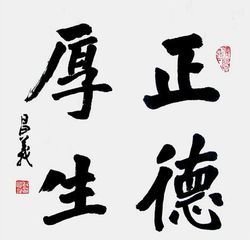 正德
厚生
昌義